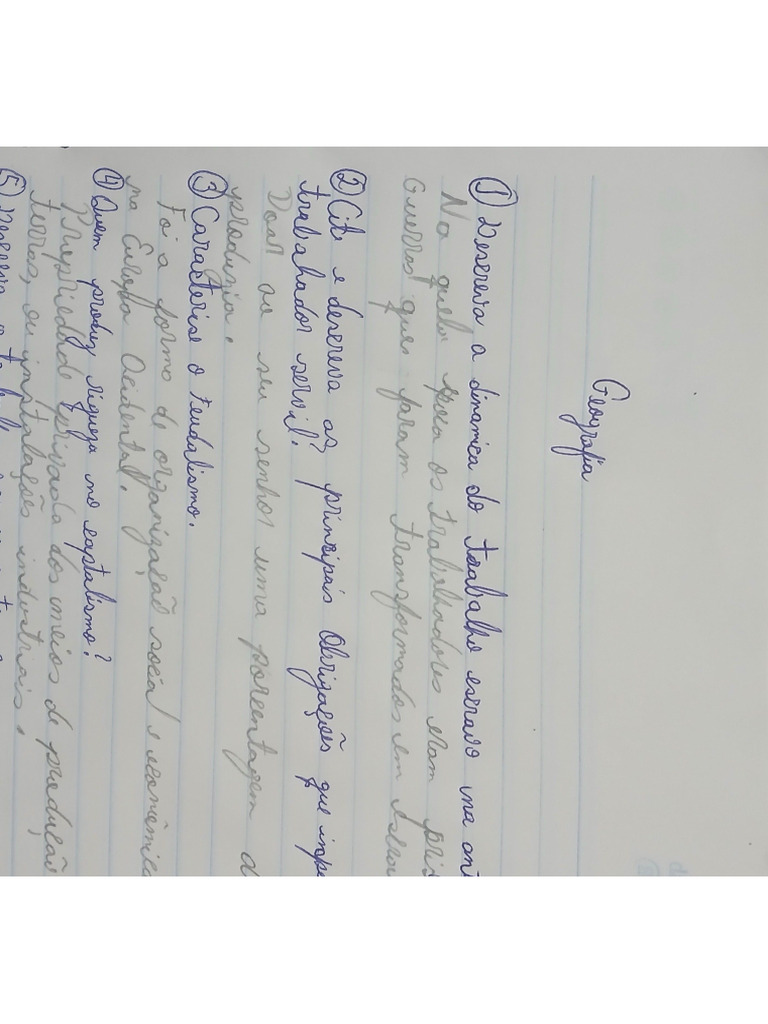 Geografia
① Descreva a dinamica do trabalho escravo na ant
Na quela epoca os trabalhadores eram pris
Guerras que foram transformados em escra
② Cite e descreva as principais Obrigações que impe
trabalhador servil?
Doar ao seu senhor uma porcentagem d
produzia.
③ Caracterise o feudalismo.
Foi a forma de organização social e econômica
na Europa Ocidental.
④ Quem produz riqueza no capitalismo?
Propriedade privada dos meios de produção
terras, ou instalações industriais.
⑤ Descreva o